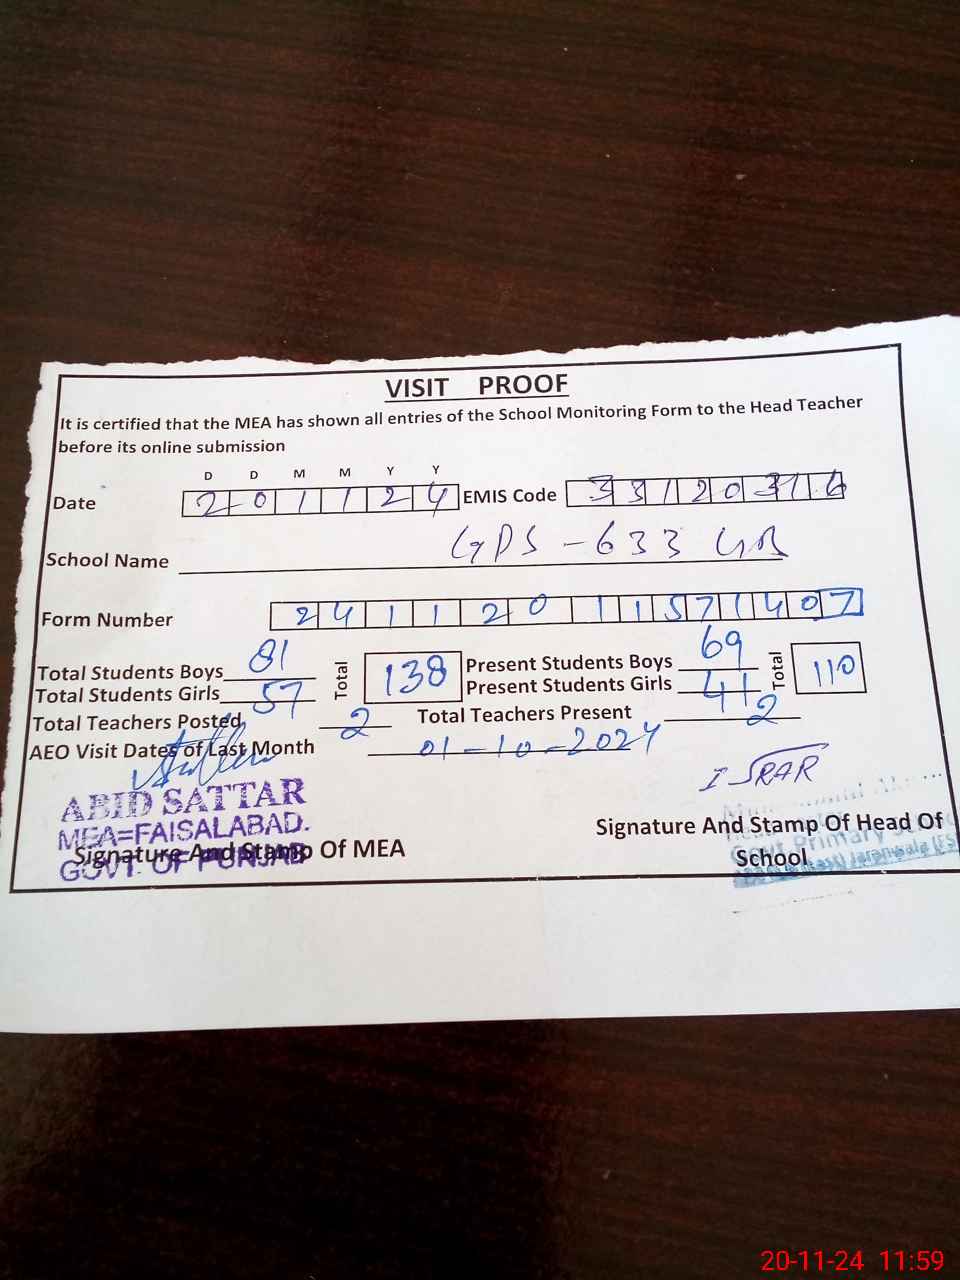 VISIT PROOF
It is certified that the MEA has shown all entries of the School Monitoring Form to the Head Teacher
before its online submission
D D M M Y Y
Date 2 0 1 1 2 4 EMIS Code 3 3 1 2 0 3 1 6
School Name GPS - 633 GB
Form Number 2 4 1 1 2 0 1 1 5 7 1 4 0 7
Total Students Boys 81 Total 138 Present Students Boys 69 Total 110
Total Students Girls 57 Present Students Girls 41
Total Teachers Posted 2 Total Teachers Present 2
AEO Visit Dates of Last Month 01-10-2024
ISRAR
ABID SATTAR
MEA=FAISALABAD.
GOVT. OF PUNJAB
Signature And Stamp Of MEA
Signature And Stamp Of Head Of
School
Govt Primary
Jaranwala
20-11-24 11:59